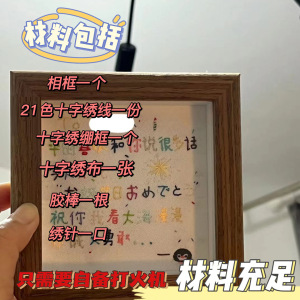 材料包括
相框一个
21色十字绣线一份
和你说很多话
十字绣绷框一个
十字绣布一张
日おめでと
胶棒一根
祝你 看大海
绣针一口
只需要自备打火机
材料充足